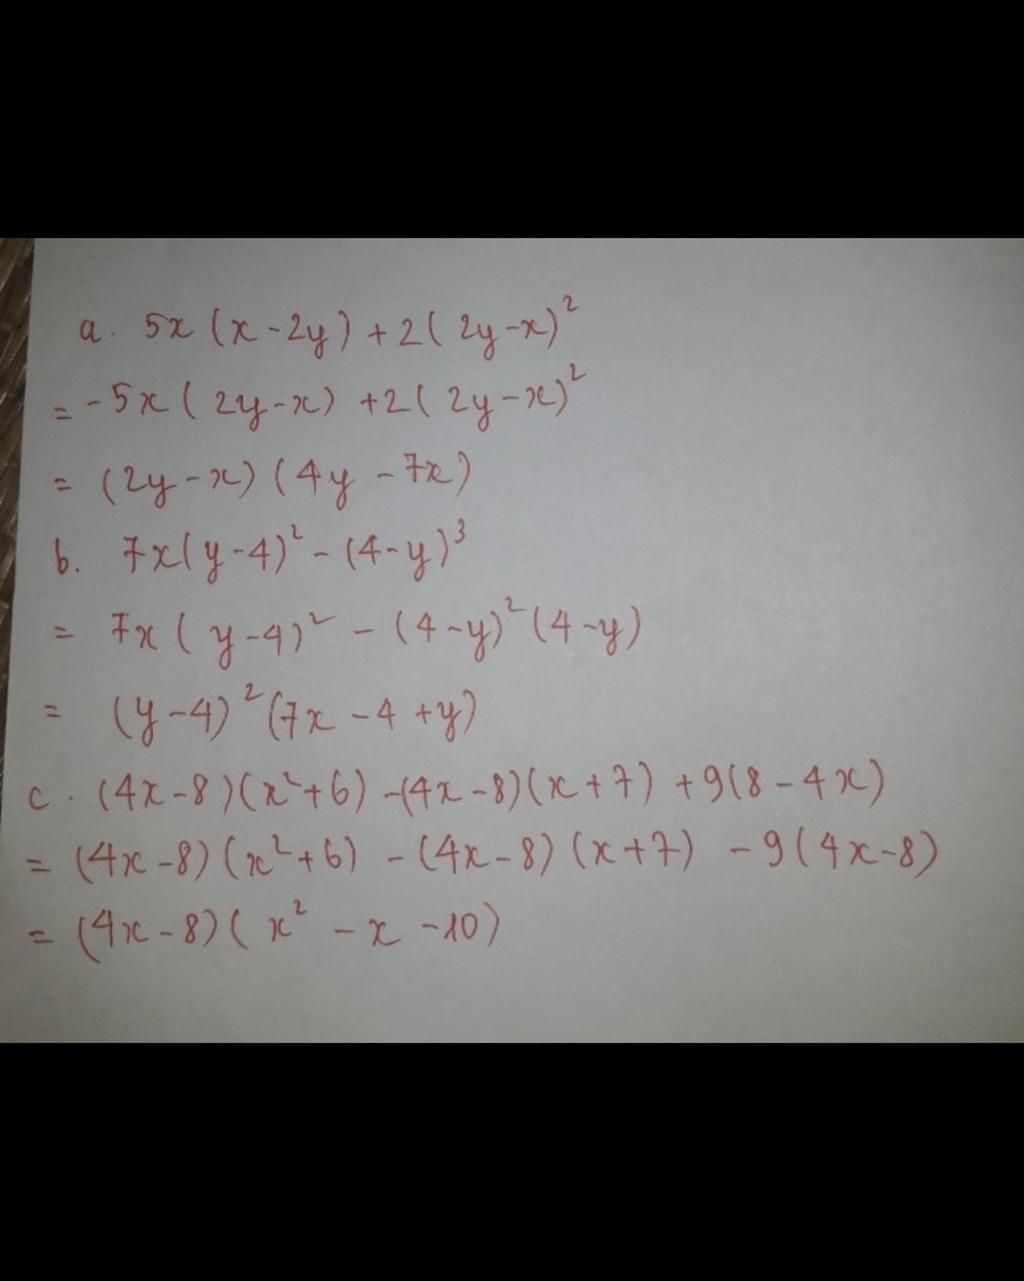 a. 5x(x-2y)+2(2y-x)²
= -5x(2y-x) +2(2y-x)²
= (2y-x)(4y-7x)
b. 7x(y-4)²-(4-y)³
= 7x(y-4)² - (4-y)²(4-y)
= (y-4)²(7x-4+y)
c. (4x-8)(x²+6)-(4x-8)(x+7)+9(8-4x)
= (4x-8)(x²+6)-(4x-8)(x+7) -9(4x-8)
= (4x-8)(x²-x-10)